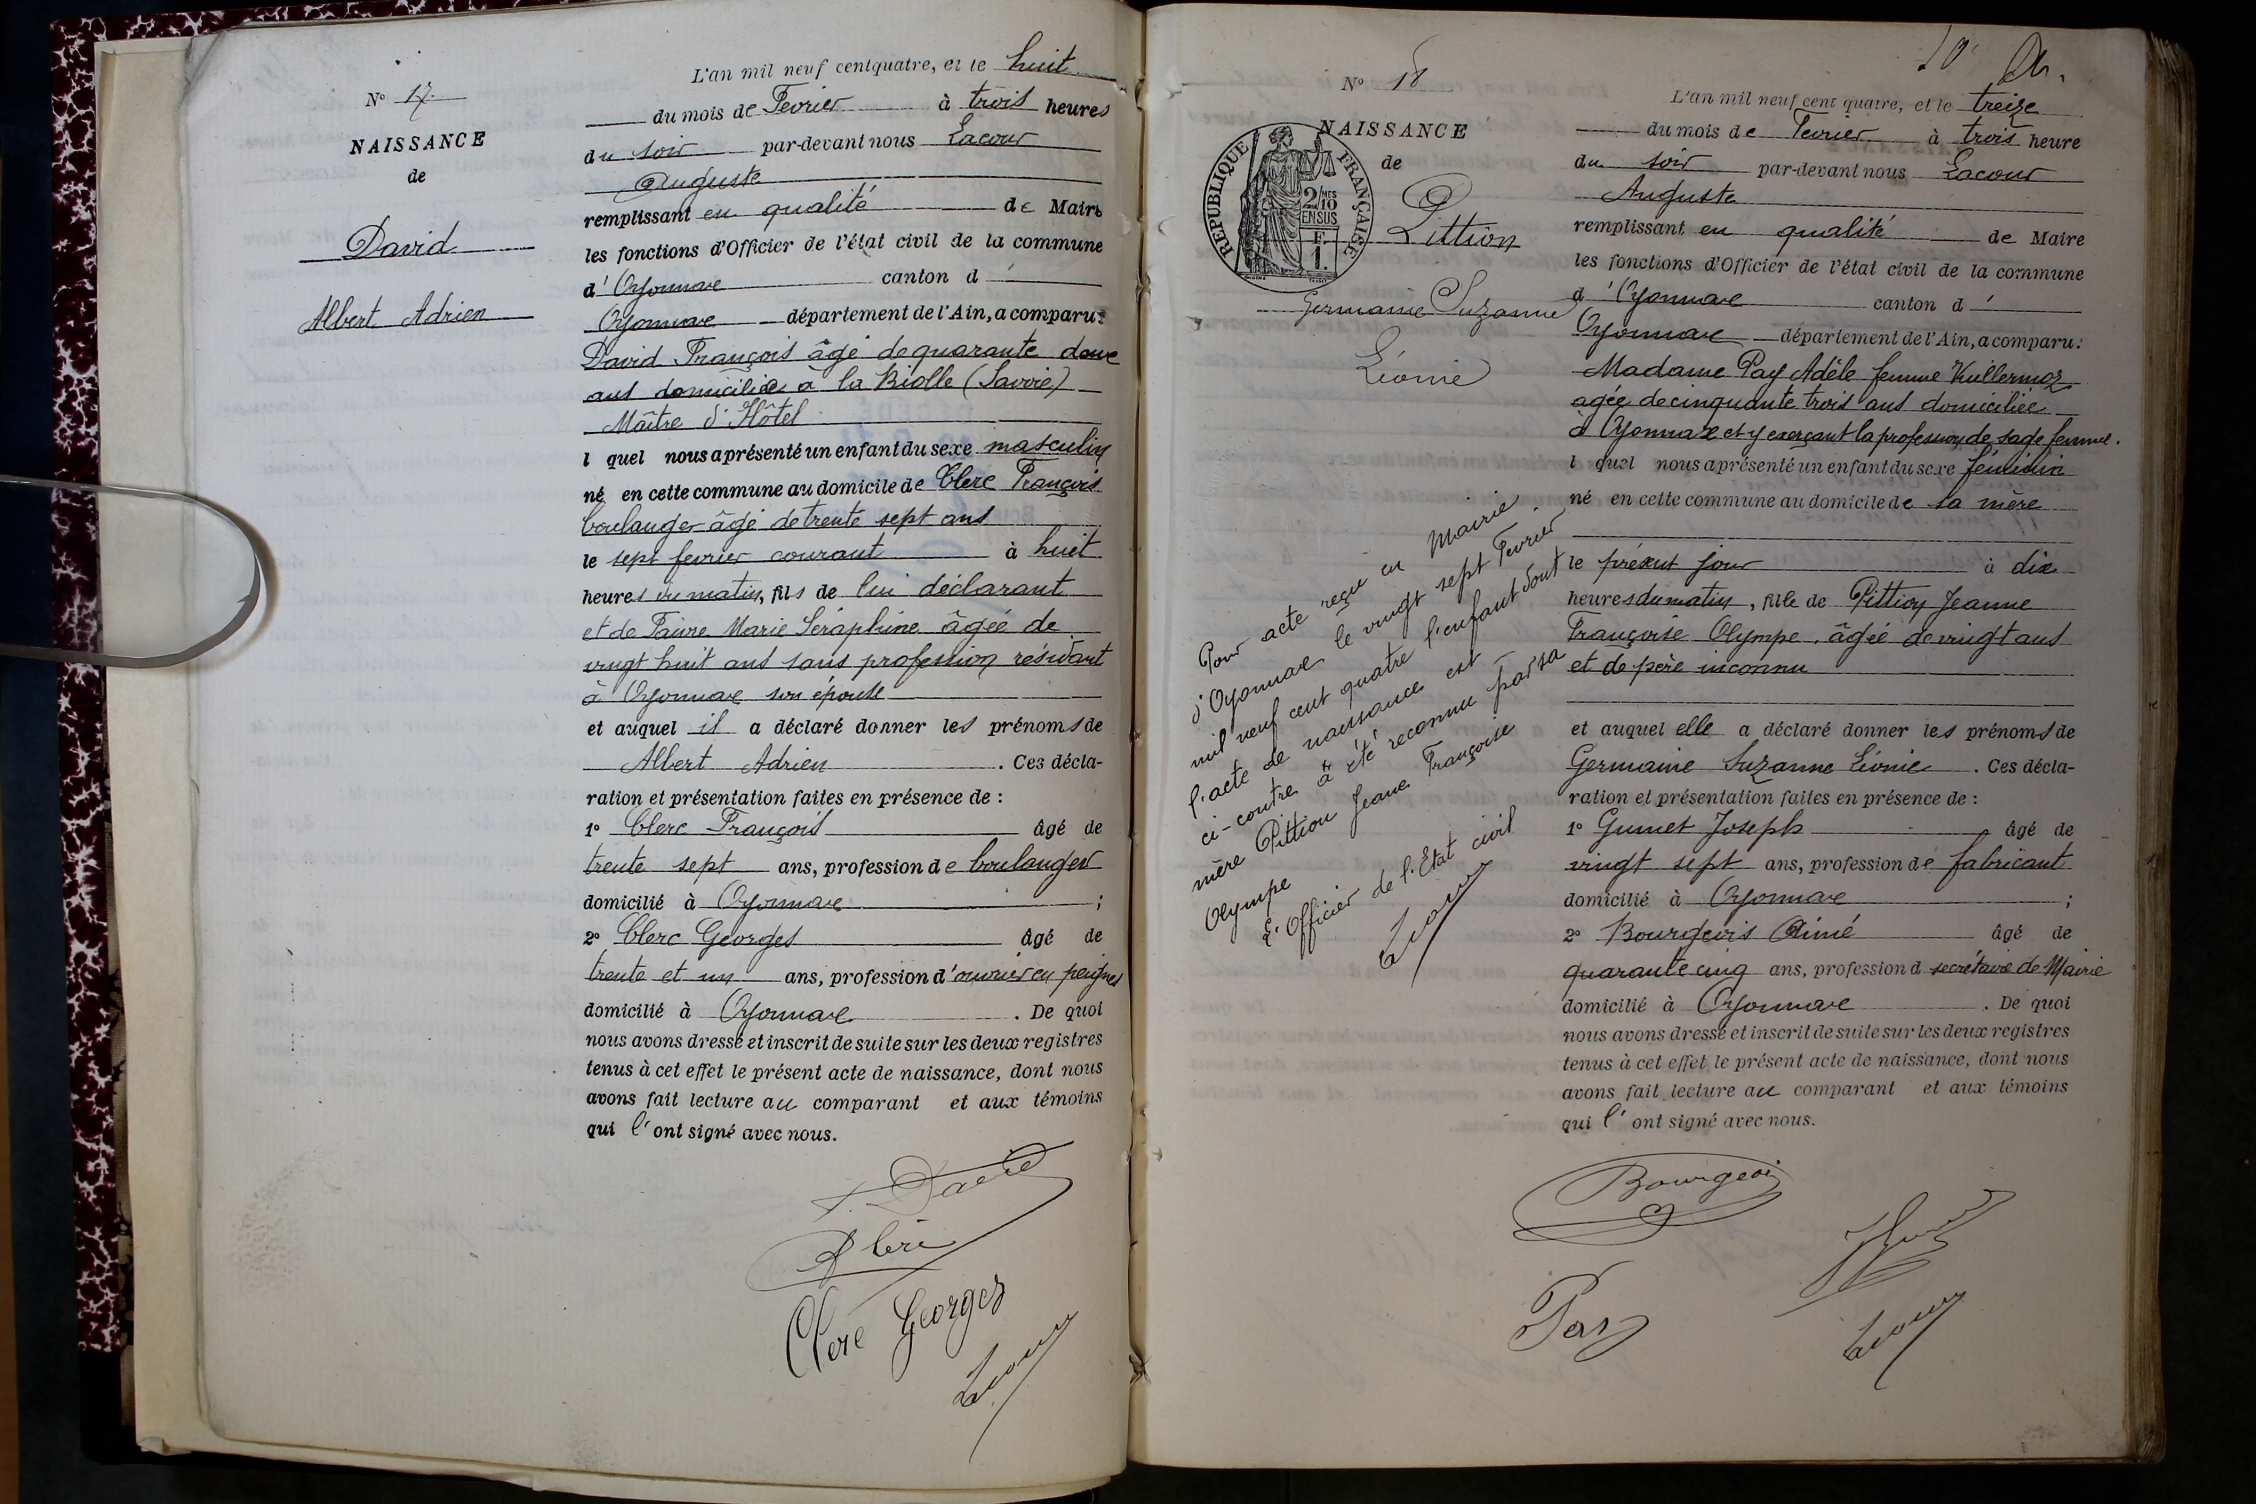 N° 17.
NAISSANCE
de
David
Albert Adrien
L'an mil neuf cent quatre, et le huit
du mois de Fevrier à trois heures
du soir par-devant nous Lacour
Auguste
remplissant en qualité de Maire
les fonctions d'Officier de l'état civil de la commune
d'Oyonnax canton d'
Oyonnax département de l'Ain, a comparu:
David François âgé de quarante deux
ans domicilié à la Biolle (Savoie)
Maître d'Hôtel
l quel nous a présenté un enfant du sexe masculin
né en cette commune au domicile de Clerc François
boulanger âgé de trente sept ans
le sept fevrier courant à huit
heures du matin, fils de lui déclarant
et de Faivre Marie Séraphine âgée de
vingt huit ans sans profession résidant
à Oyonnax son épouse
et auquel il a déclaré donner les prénoms de
Albert Adrien . Ces décla-
ration et présentation faites en présence de :
1° Clerc François âgé de
trente sept ans, profession de boulanger
domicilié à Oyonnax ;
2° Clerc Georges âgé de
trente et un ans, profession d'ouvrier en peignes
domicilié à Oyonnax . De quoi
nous avons dressé et inscrit de suite sur les deux registres
tenus à cet effet le présent acte de naissance, dont nous
avons fait lecture au comparant et aux témoins
qui l'ont signé avec nous.
F. David
Clerc
Clerc Georges
Lacour
N° 18
NAISSANCE
de
REPUBLIQUE FRANÇAISE
2/10 MES
EN SUS
F.
1.
Pittion
Germaine Suzanne
Léonie
Pour acte reçu en Mairie
d'Oyonnax le vingt sept Fevrier
mil neuf cent quatre l'enfant dont
l'acte de naissance est
ci-contre à été reconnu par sa
mère Pittion Jeane Françoise
Olympe
L'Officier de l'Etat civil
Lacour
10
L'an mil neuf cent quatre, et le treize
du mois de Fevrier à trois heure
du soir par-devant nous Lacour
Auguste
remplissant en qualité de Maire
les fonctions d'Officier de l'état civil de la commune
d'Oyonnax canton d'
Oyonnax département de l'Ain, a comparu:
Madame Pay Adèle femme Vuillermoz
agée de cinquante trois ans domiciliée
à Oyonnax et y exerçant la profession de sage femme.
l quel nous a présenté un enfant du sexe féminin
né en cette commune au domicile de sa mère
le présent jour à dix
heures du matin, fille de Pittion Jeanne
Françoise Olympe . âgée de vingt ans
et de père inconnu
et auquel elle a déclaré donner les prénoms de
Germaine Suzanne Léonie . Ces décla-
ration et présentation faites en présence de :
1° Gumet Joseph âgé de
vingt sept ans, profession de fabricant
domicilié à Oyonnax ;
2° Bourgeois Aimé âgé de
quarante cinq ans, profession d secrétaire de Mairie
domicilié à Oyonnax . De quoi
nous avons dressé et inscrit de suite sur les deux registres
tenus à cet effet le présent acte de naissance, dont nous
avons fait lecture au comparant et aux témoins
qui l'ont signé avec nous.
Bourgeois
Lacour